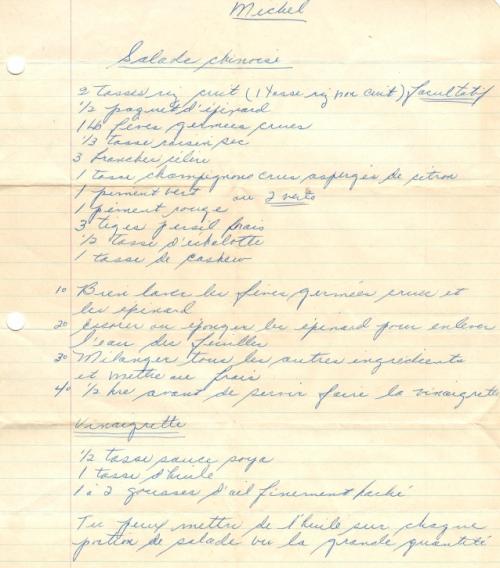 Michel
Salade chinoise
2 tasses riz cuit (1 tasse riz non cuit) facultatif
1/2 paquet d'épinard
1 lb fèves germées crues
1/3 tasse raisin sec
3 branches céleri
1 tasse champignons crus aspergés de citron
1 piment vert ou 2 verts
1 piment rouge
3 tiges persil frais
1/2 tasse d'échalotte
1 tasse de cashew
1o Bien laver les fèves germées crues et
les épinard
2o Essorer ou éponger les épinard pour enlever
l'eau des feuilles
3o Mélanger tous les autres ingrédients
et mettre au frais
4o 1/2 hre avant de servir faire la vinaigrette
Vinaigrette
1/2 tasse sauce soya
1 tasse d'huile
1 à 2 gousses d'ail finement haché
Tu peux mettre de l'huile sur chaque
portion de salade vu la grande quantité